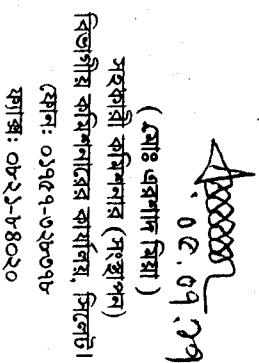 ০৫.০৭.২১
(মোঃ এরশাদ মিয়া)
সহকারী কমিশনার (সংস্থাপন)
বিভাগীয় কমিশনারের কার্যালয়, সিলেট।
ফোন: ০১৭৫৭-৭২৮৩৭৮
ফ্যাক্স: ০৮২১-৮৪০২০